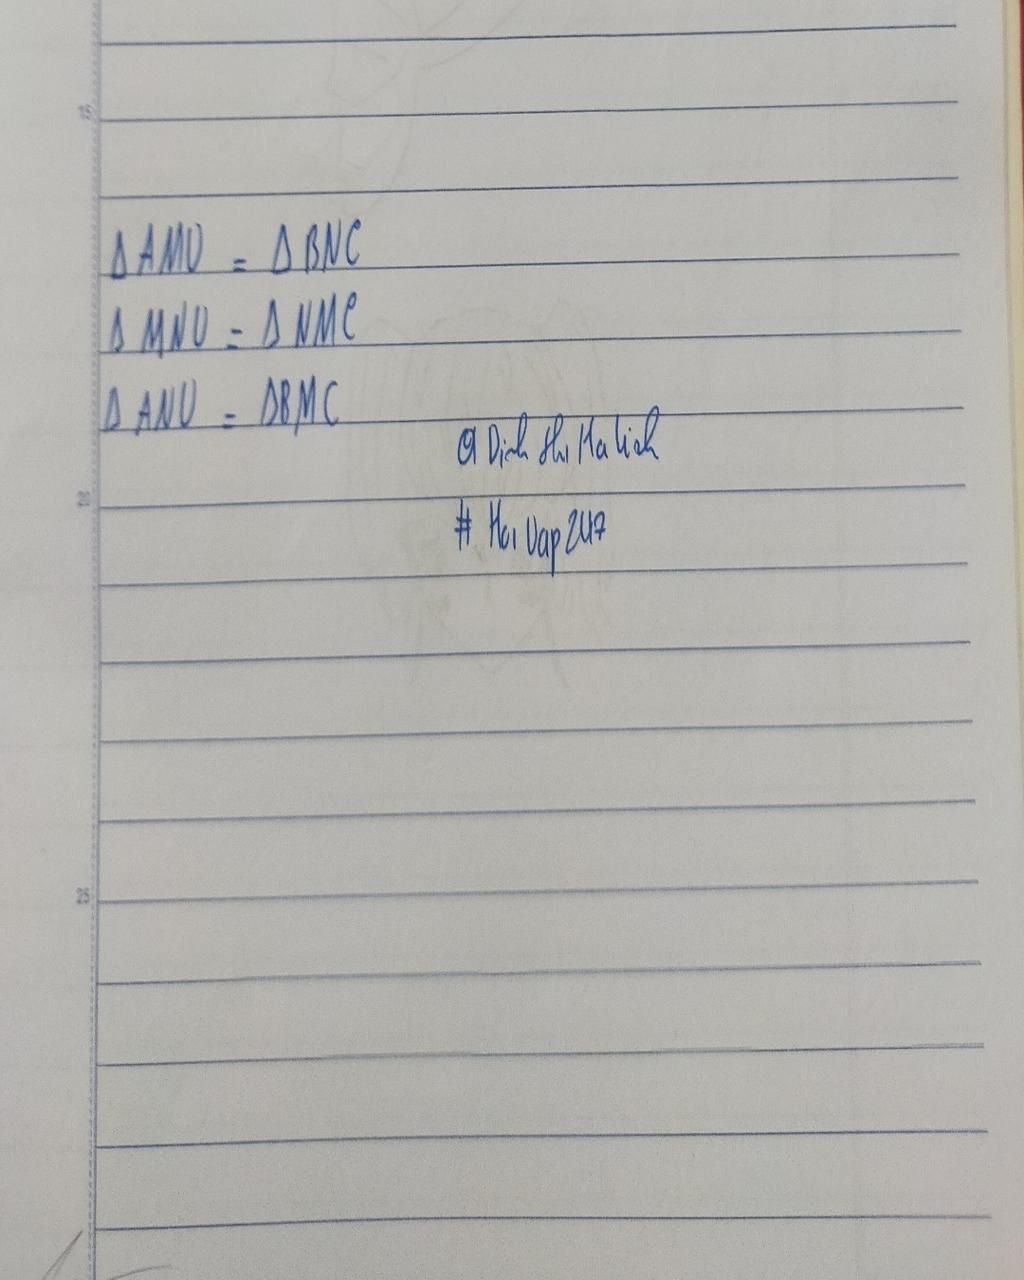 Δ AMU = Δ BNC
Δ MNU = Δ NMC
Δ ANU = ΔBMC
@ Dinh thi Ha lich
# Hoi Vap 247
20
25